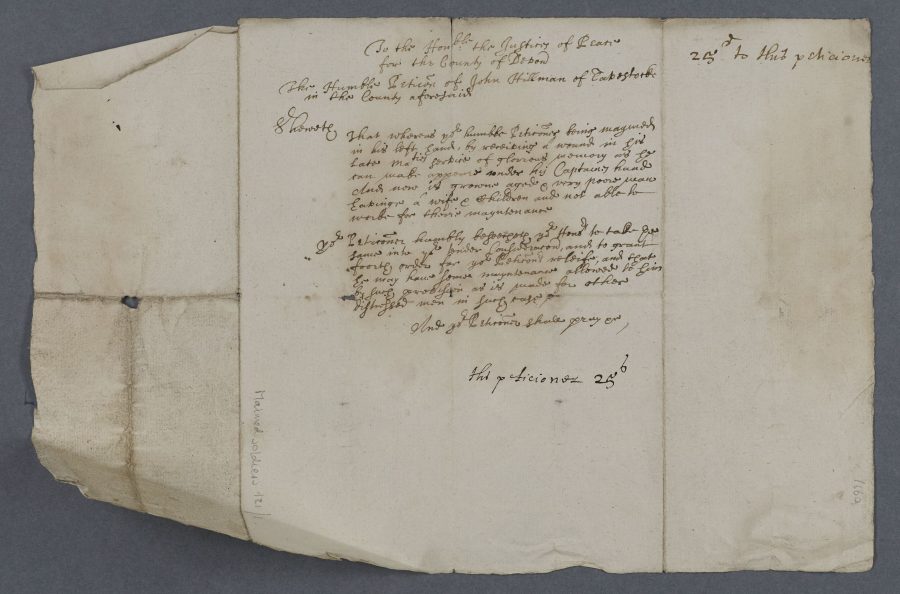 To the Honble: the Justices of Peace
for the County of Devon
The Humble Peticon of John Hillman of Tavestocke
in the County aforesaid
Sheweth
That whereas yor humble Peticoner being maymed
in his left hand, by receiving a wound in his
late Maties service of glorious memory as he
can make appeare under his Captaines hand
And now is growne aged & very poore man
havinge a wife & Children and not able to
worke for theire mayntenance
Yor Peticoner humbly beseecheth yor Honrs to take the
same into yor tender Consideracon, and to grant
forth order for yor Peticonrs releife, and that
he may have some mayntenance allowed to him
by such provision as is made for other
distressed men in such case
And yor Peticoner shall pray &c
this peticioner 25s
25s to this peticioner
Maimed soldiers 121/1